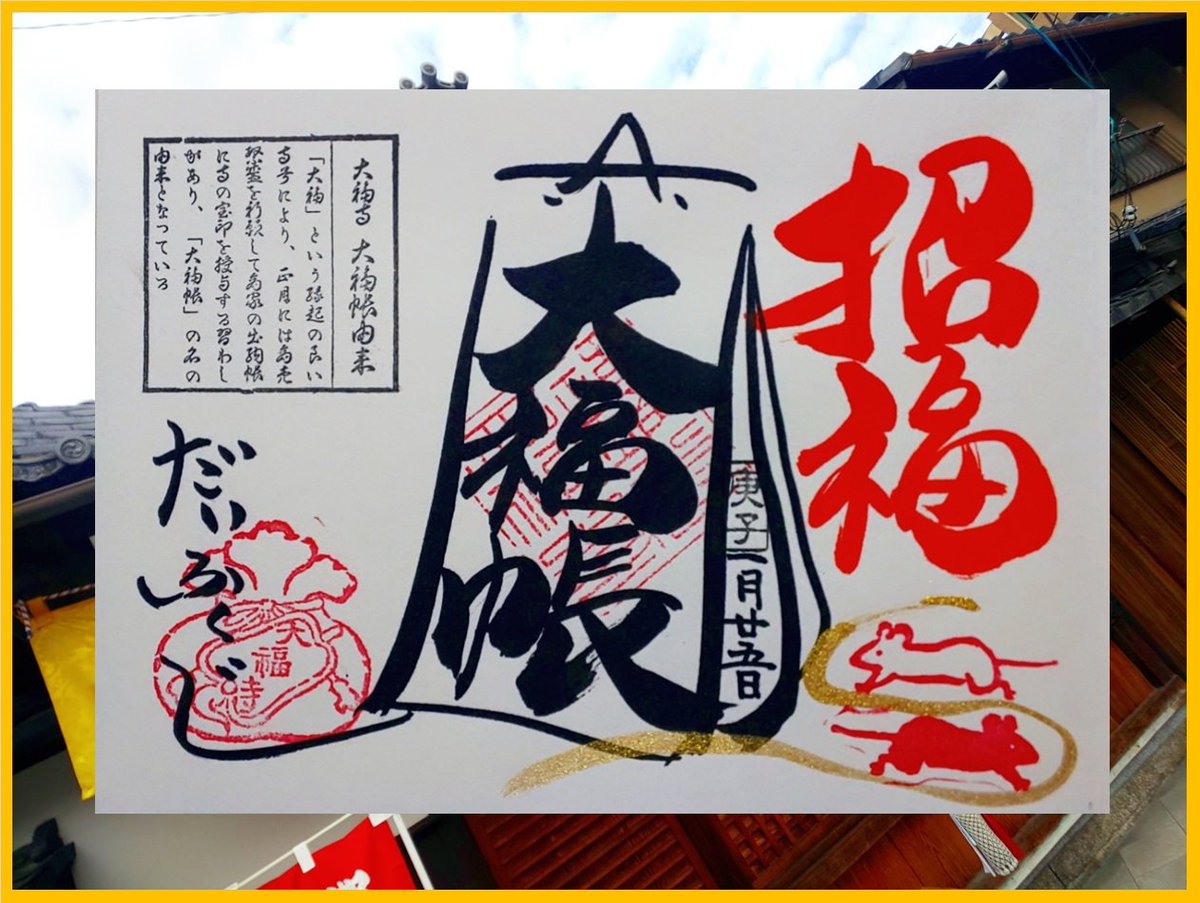 招福
大福帳
庚子一月廿五日
大福寺 大福帳由来
「大福」という縁起の良い
寺号により、正月には商売
繁盛を祈願して商家の出納帳
に寺の宝印を授与する習わし
があり、「大福帳」の名の
由来となっている
だいふくじ
大福寺